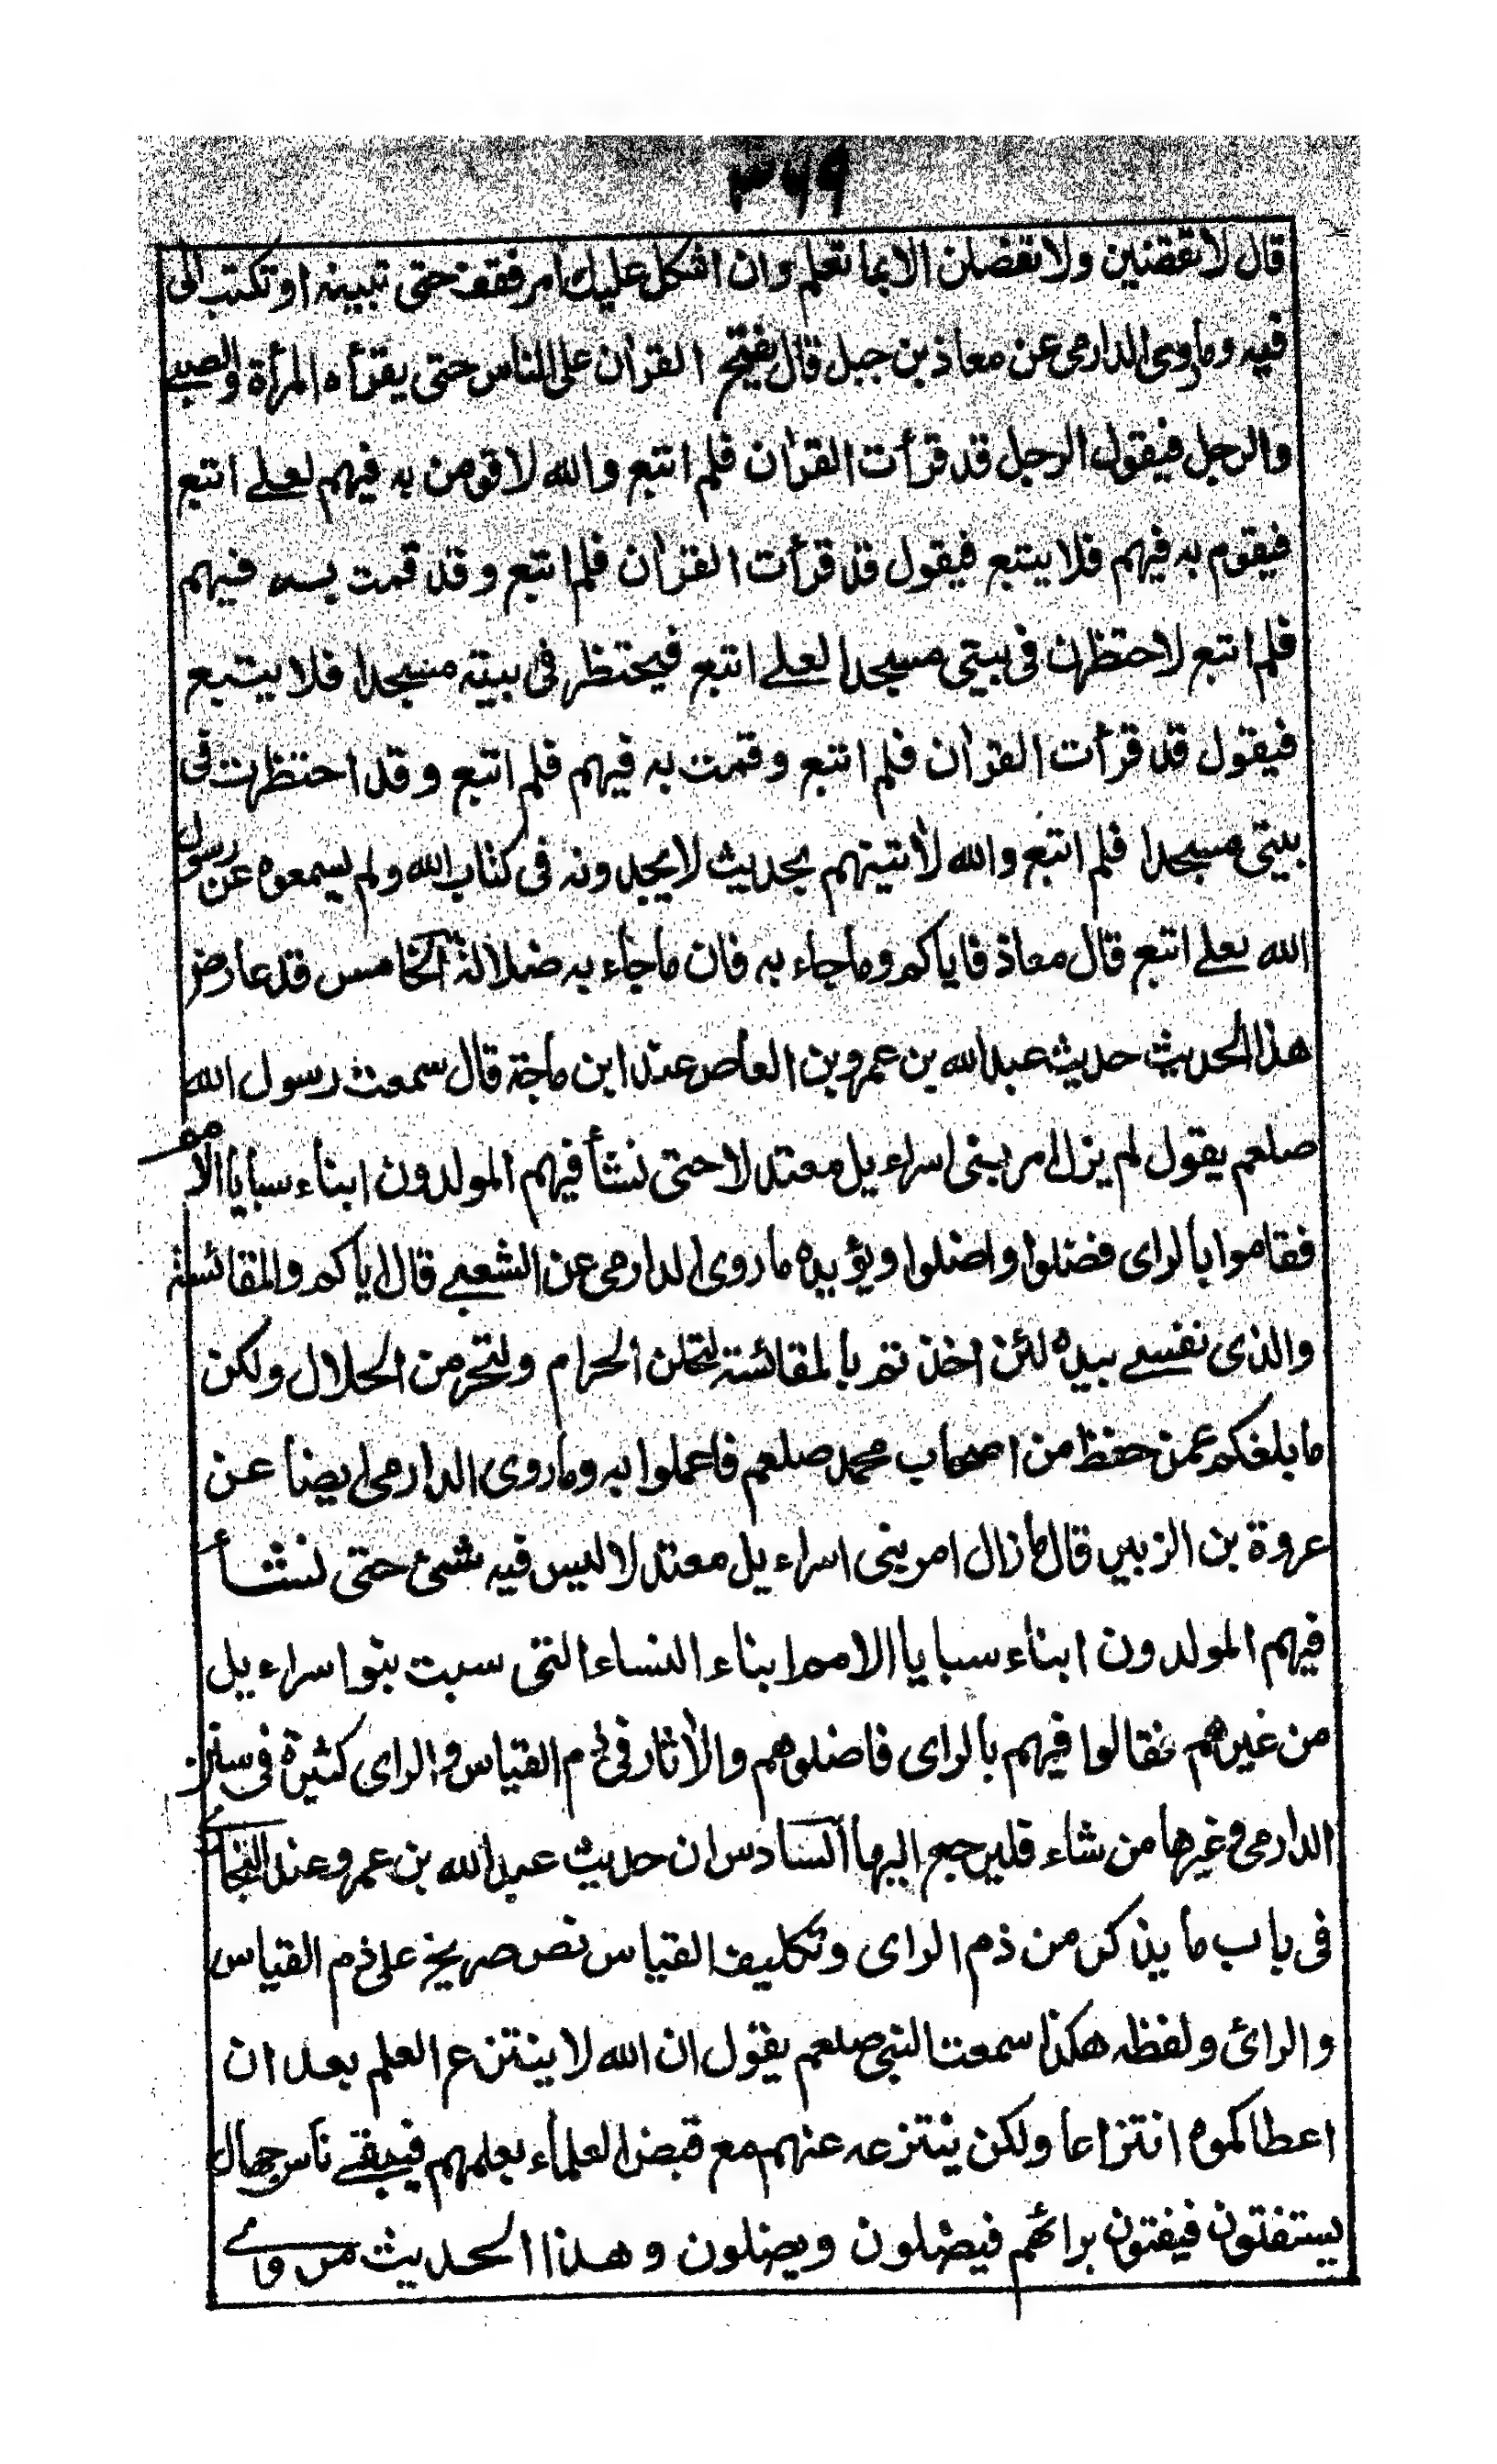 ۳۶۹
قال لا تقضين ولا تفضلن الا بما تعلم وان اشكل عليك امر فقف حتى تبينه او تكتب الى
فيه وما روى الدارمى عن معاذ بن جبل قال يفتح القرآن على الناس حتى يقرأه المرأة والصبى
والرجل فيقول الرجل قد قرأت القرآن فلم اتبع والله لاقومن به فيهم لعلى اتبع
فيقوم به فيهم فلا يتبع فيقول قد قرأت القرآن فلم اتبع وقد قمت به فيهم
فلم اتبع لاحتظرن فى بيتى مسجدا لعلى اتبع فيحتظر فى بيته مسجدا فلا يتبع
فيقول قد قرأت القرآن فلم اتبع وقمت به فيهم فلم اتبع وقد احتظرت فى
بيتى مسجدا فلم اتبع والله لآتينهم بحديث لا يجدونه فى كتاب الله ولم يسمعوه عن رسول
الله لعلى اتبع قال معاذ فاياكم وما جاء به فان ما جاء به ضلالة الخامس قد عارض
هذا الحديث حديث عبد الله بن عمرو بن العاص عند ابن ماجة قال سمعت رسول الله
صلعم يقول لم يزل امر بنى اسراءيل معتدلا حتى نشأ فيهم المولدون ابناء سبايا الامم
فقاموا بالراى فضلوا واضلوا ويؤيده ما روى الدارمى عن الشعبى قال اياكم والمقائسة
والذى نفسى بيده لئن اخذتم بالمقائسة لتحلن الحرام ولتحرمن الحلال ولكن
ما بلغكم عمن حفظ من اصحاب محمد صلعم فاعملوا به وما روى الدارمى ايضا عن
عروة بن الزبير قال ما زال امر بنى اسراءيل معتدلا ليس فيه شئ حتى نشأ
فيهم المولدون ابناء سبايا الامم ابناء النساء التى سبت بنو اسراءيل
من غيرهم فقالوا فيهم بالراى فاضلوهم والآثار فى ذم القياس والراى كثيرة فى سنن
الدارمى وغيرها من شاء فليرجع اليها السادس ان حديث عبد الله بن عمرو عند البخارى
فى باب ما يذكر من ذم الراى وتكليف القياس نص صريح على ذم القياس
والرائ ولفظه هكذا سمعت النبى صلعم يقول ان الله لا ينتزع العلم بعد ان
اعطاكموه انتزاعا ولكن ينتزعه عنهم مع قبض العلماء بعلمهم فيبقى ناس جهال
يستفتون فيفتون برائهم فيضلون ويضلون وهذا الحديث مروى